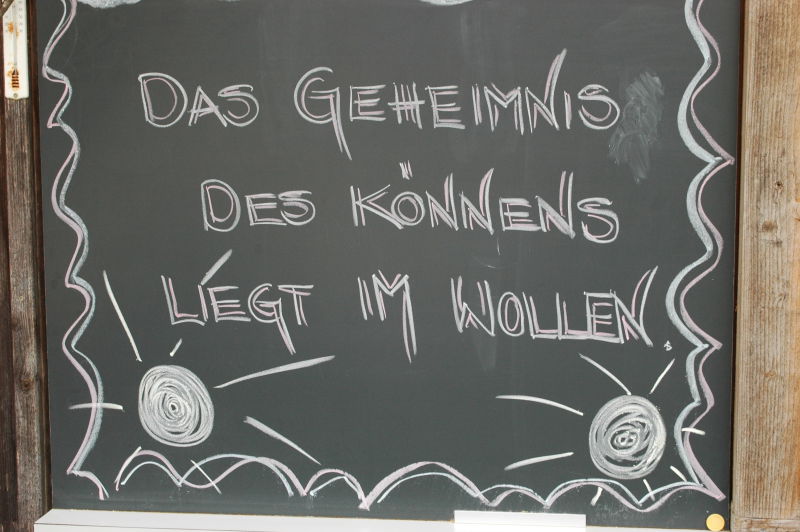 DAS GEHEIMNIS
DES KÖNNENS
LIEGT IM WOLLEN